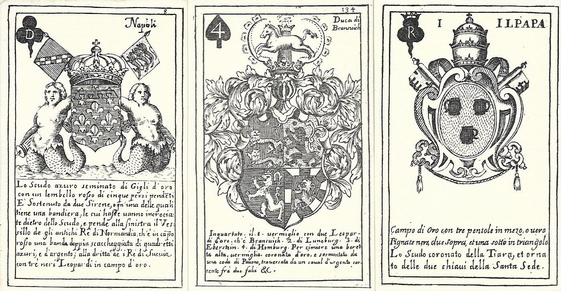 8
D
Napoli
Lo Scudo azuro seminato di Gigli d'oro
con un lambello rosso di cinque pezzi pendēti
E' Sostenuto da due Sirene, ogn'una delle quali
tiene una bandiera, le cui haste vanno incrocia-
te dietro dello Scudo, e pende alla sinistra il Ves-
sillo de gli antichi Rè di Normandia, ch'è in cāpo
rosso una banda doppia scaccheggiata di quadretti
azurri, e d'argento; alla dritta de i Rè di Suevia
con tre neri Leopardi in campo d'oro.
134
4
Duca di
Bransuich
Inquartato, il 1. vermiglio con due Leopar-
di d'oro, ch'è Bransuich. 2. di Luneburg. 3. di
Eberstein. 4. di Homburg. Per cimiero una beret
ta alta, vermiglia, coronata d'oro, e sormontata da
una coda di Pavone, traversata da un caval d'argento cor-
rente frà due falci &c.
R
I
IL PAPA
Campo di Oro con tre pentole in mezo, o uero
Pignate nere, due sopra, et una sotto in triangolo
Lo Scudo coronato della Tiara, et orna
to delle due chiavi della Santa Sede.